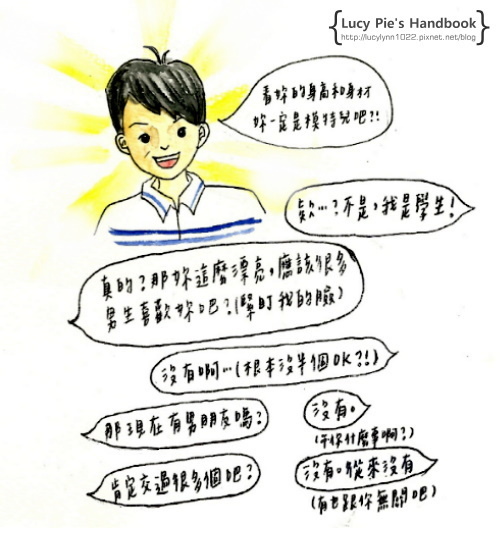 Lucy Pie's Handbook
http://lucylynn1022.pixnet.net/blog
看妳的身高和身材
妳一定是模特兒吧?!
欸…?不是,我是學生!
真的?那妳這麼漂亮,應該很多
男生喜歡妳吧?(緊盯我的臉)
沒有啊…(根本沒半個OK?!)
那現在有男朋友嗎?
沒有。
(干你什麼事啊?)
肯定交過很多個吧?
沒有。從來沒有
(有也跟你無關吧)